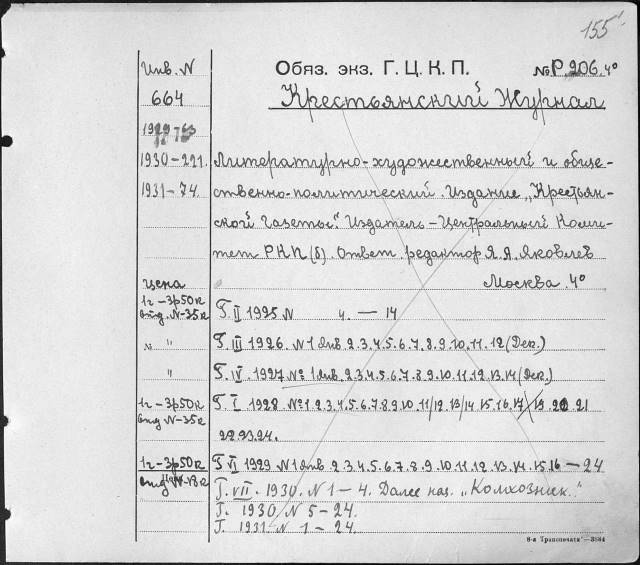 155
Инв. N
Обяз. экз. Г. Ц. К. П.
№ Р. 206. 4º
664
Крестьянский Журнал
1929
1930-221.
Литературно-художественный и обще-
1931-74.
ственно-политический. Издание „Крестьян-
ской Газеты“. Издатель-Центральный Коми-
тет РКП(б). Ответ. редактор Я.А. Яковлев
Москва. 4º
цена
1г-3р50к
отд. N-35к
Г. II 1925 N 4. — 14
" "
Г. III 1926. N 1 Янв. 2.3.4.5.6.7.8.9.10.11.12 (Дек.)
"
Г. IV. 1927 № 1 Янв. 2.3.4.5.6.7.8.9.10.11.12.13.14 (Дек.)
1г-3р50к
отд N-35к
Г. V 1928 № 1.2.3.4.5.6.7.8.9.10.11/12.13/14 15.16.17/ 19 20 21
22 23 24.
1г-3р50к
отд N-18к
Г. VI 1929 N 1 Янв 2.3.4.5.6.7.8.9.10.11.12.13.14.15.16 — 24
Г. VII. 1930. N 1-4. Далее наз. „Колхозник“.
Г. 1930 N 5-24.
Г. 1931. N 1-24.
8-я Транспечати—3584